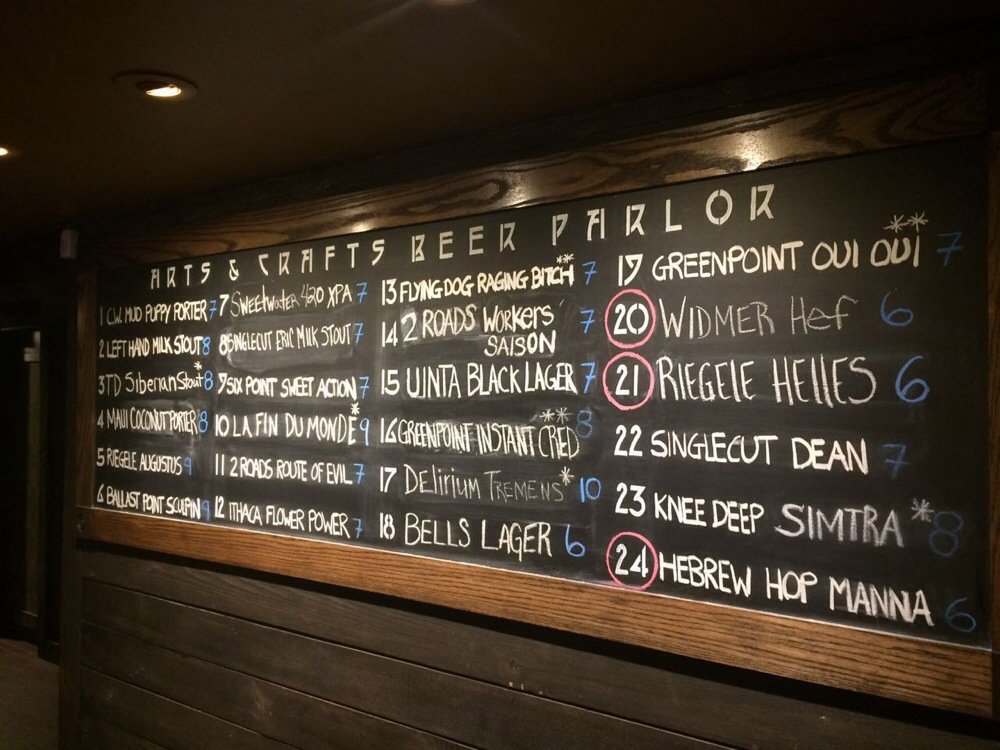 ARTS & CRAFTS BEER PARLOR
1 C.W. MUD PUPPY PORTER 7
2 LEFT HAND MILK STOUT 8
3 TD Siberian Stout* 8
4 MAUI COCONUT PORTER 8
5 RIEGELE AUGUSTUS 9
6 BALLAST POINT SCULPIN 9
7 Sweetwater 420 XPA 7
8 SINGLECUT ERIC MILK STOUT 7
9 SIX POINT SWEET ACTION 7
10 LA FIN DU MONDE* 9
11 2 ROADS ROUTE OF EVIL 7
12 ITHACA FLOWER POWER 7
13 FLYING DOG RAGING BITCH** 7
14 2 ROADS WORKERS'
SAISON 7
15 UINTA BLACK LAGER 7
16 GREENPOINT INSTANT CRED** 8
17 DELIRIUM TREMENS* 10
18 BELLS LAGER 6
19 GREENPOINT OUI OUI** 7
20 WIDMER Hef 6
21 RIEGELE HELLES 6
22 SINGLECUT DEAN 7
23 KNEE DEEP SIMTRA* 8
24 HEBREW HOP MANNA 6